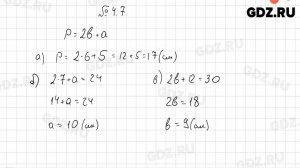 GDZ.RU
№ 4.7
P = 2b + a
а) P = 2·6+5 = 12+5 = 17 (см)
б) 2·7+a = 24
14+a = 24
a = 10 (см)
в) 2b+12=30
2b = 18
b = 9 (см)
GDZ.RU